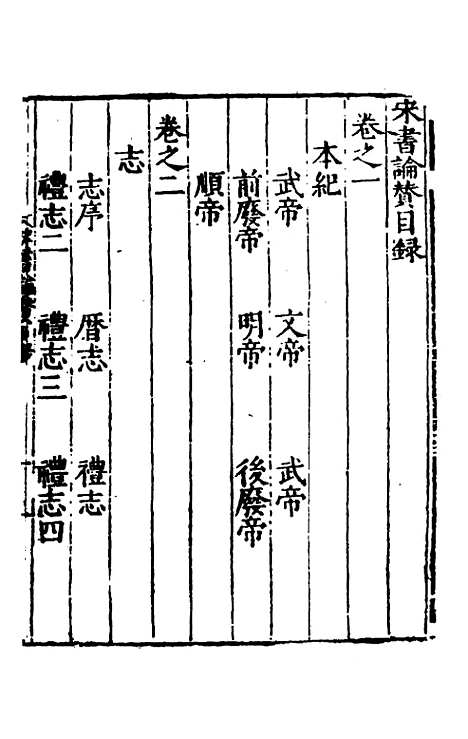 宋書論賛目録
卷之一
本紀
武帝 文帝 武帝
前廢帝 明帝 後廢帝
順帝
卷之二
志
志序 曆志 禮志
禮志二 禮志三 禮志四